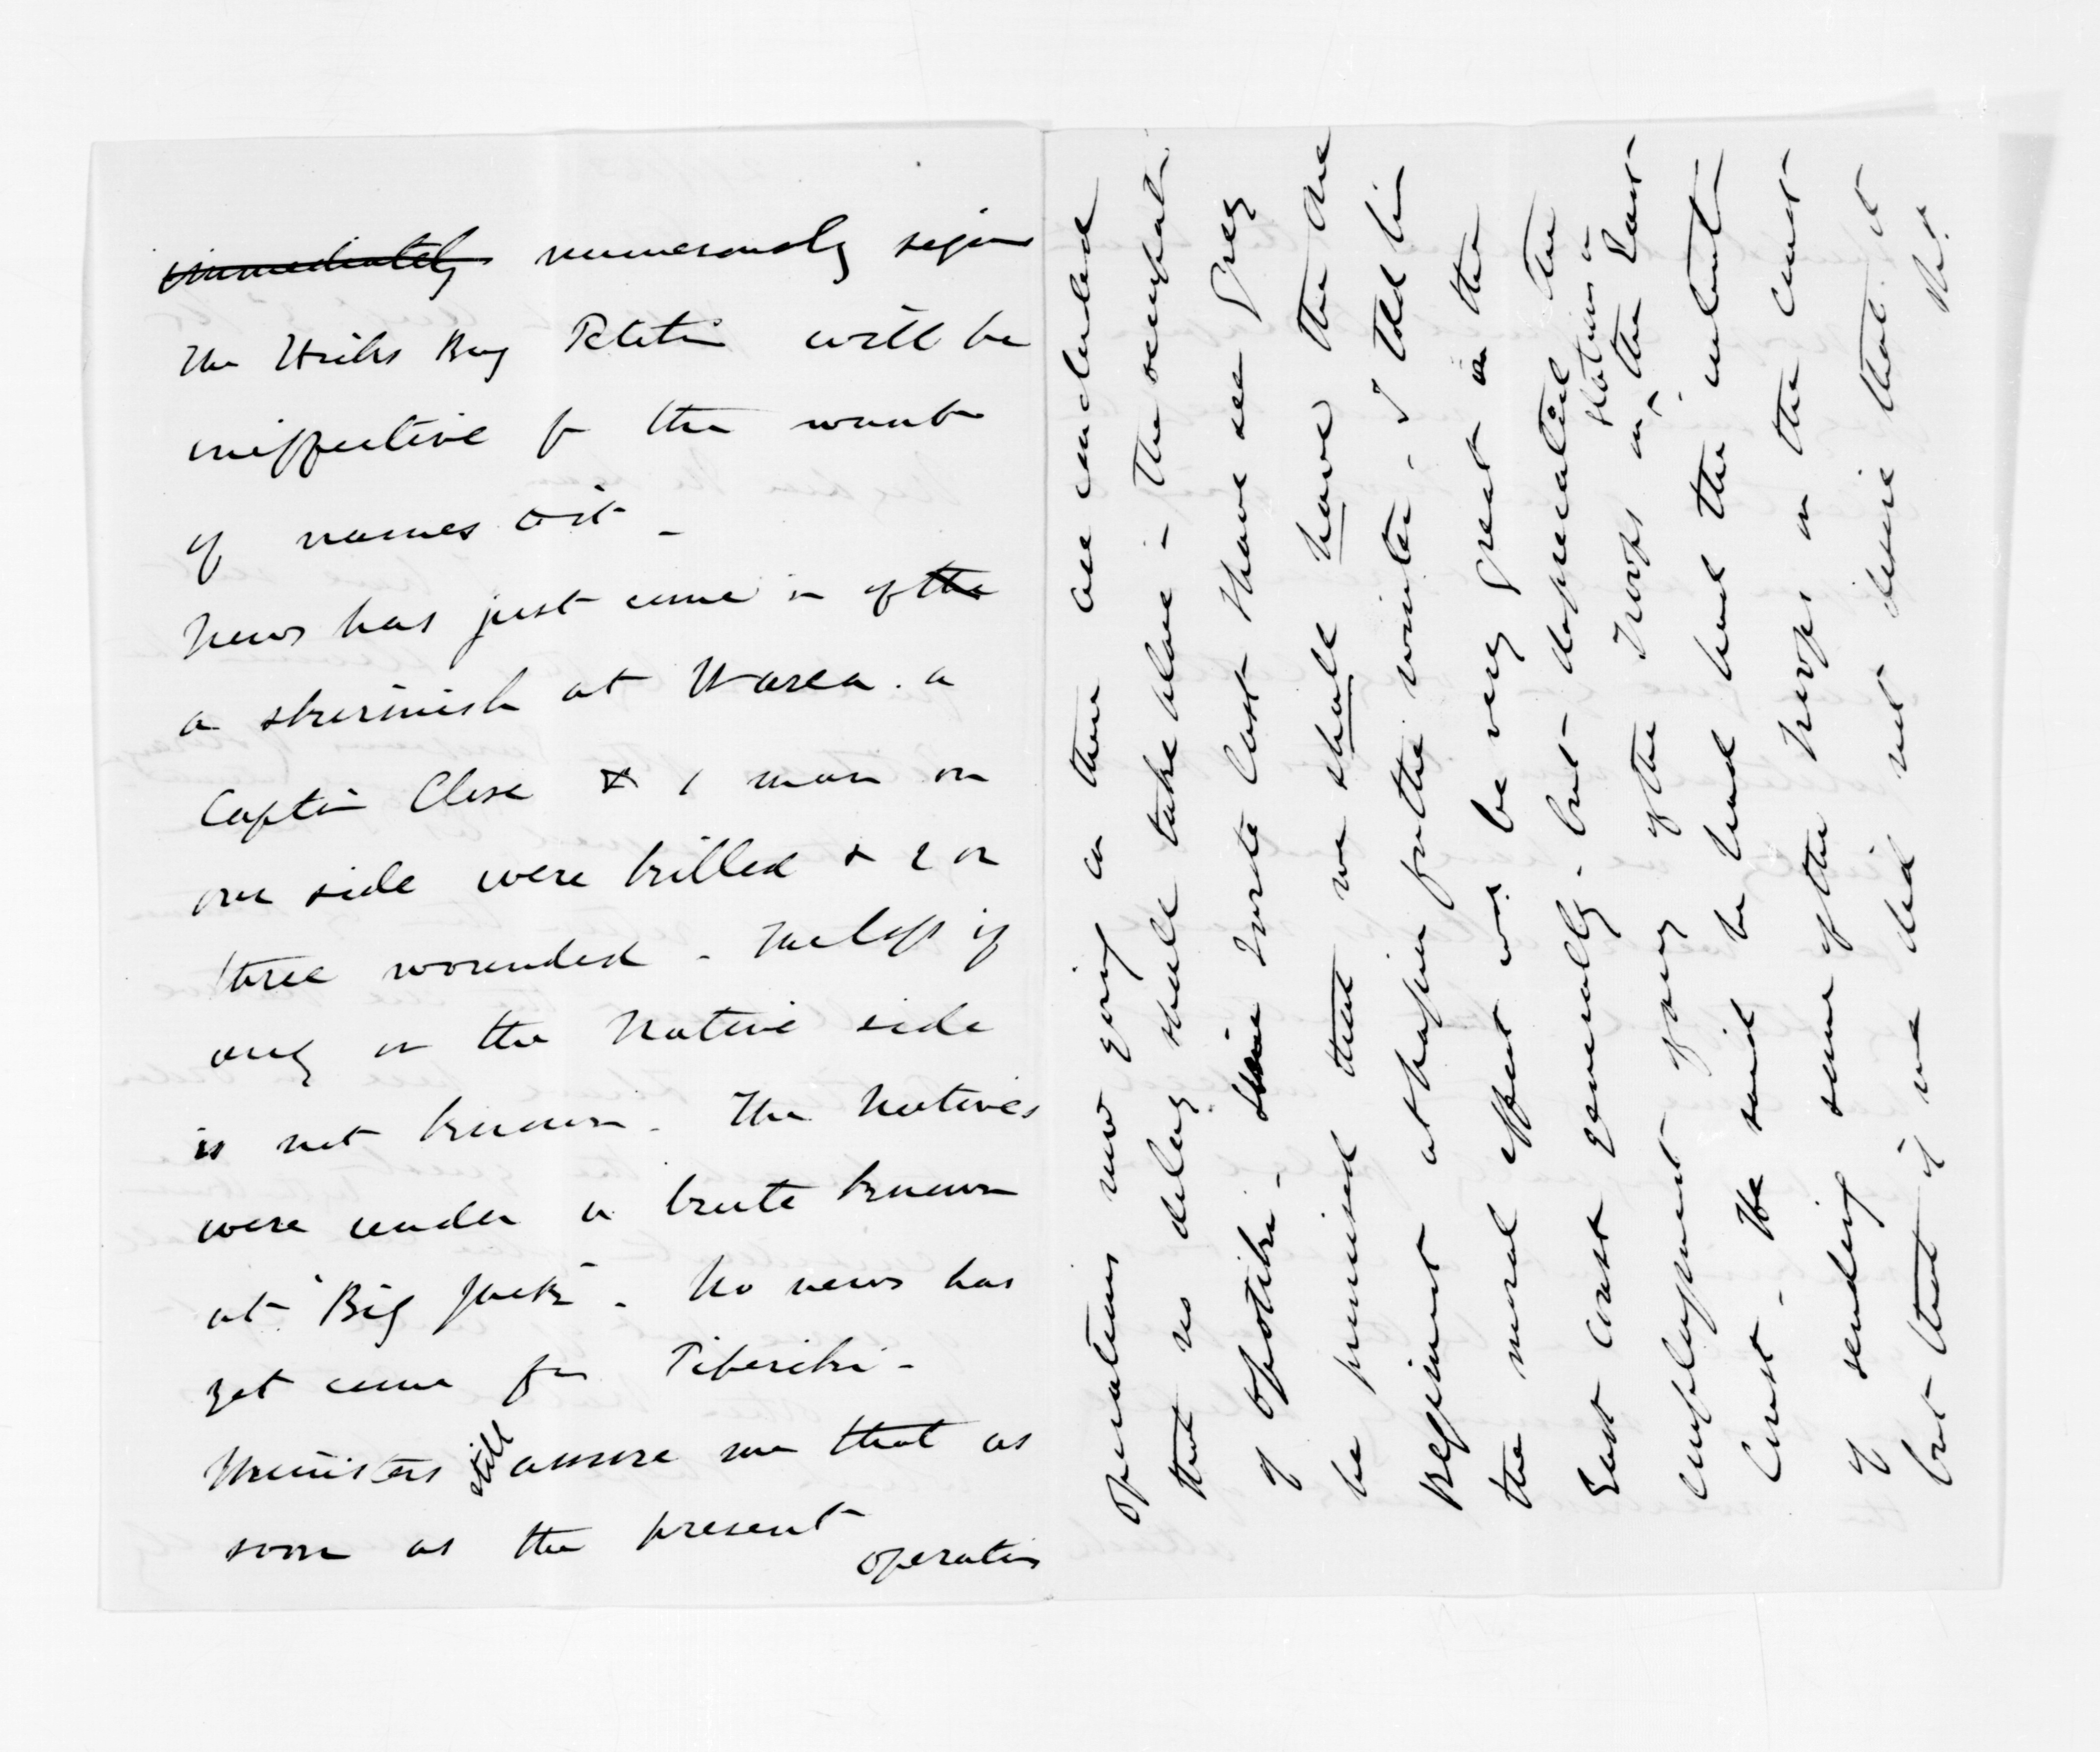 immediately numerously signed
the Hawkes Bay Petition will be
ineffective for the want
of names to it -
News has just come in of the
a skirmish at Warea. a
Captain Close & 1 man on
our side were killed & 2 or
three wounded - The loss if
any on the Native side
is not known. The Natives
were under a brute known
as "Big Jack" - No news has
yet come from
Ministers still assure me that as
soon as the present operations
operations now going on there are concluded
that no delay shall take place in the occupation
of Opotiki - Since I wrote last I have see Grey
he promised that we shall have the the
Regiment at Napier for the winter - I told him
the moral effect wd. be very great on the
East Coast generally - but deprecated the
employment of any of the troops in stations on the East
Coast - He said he had had the intention
of sending some of the troops on the Coast
but that if we did not desire that it